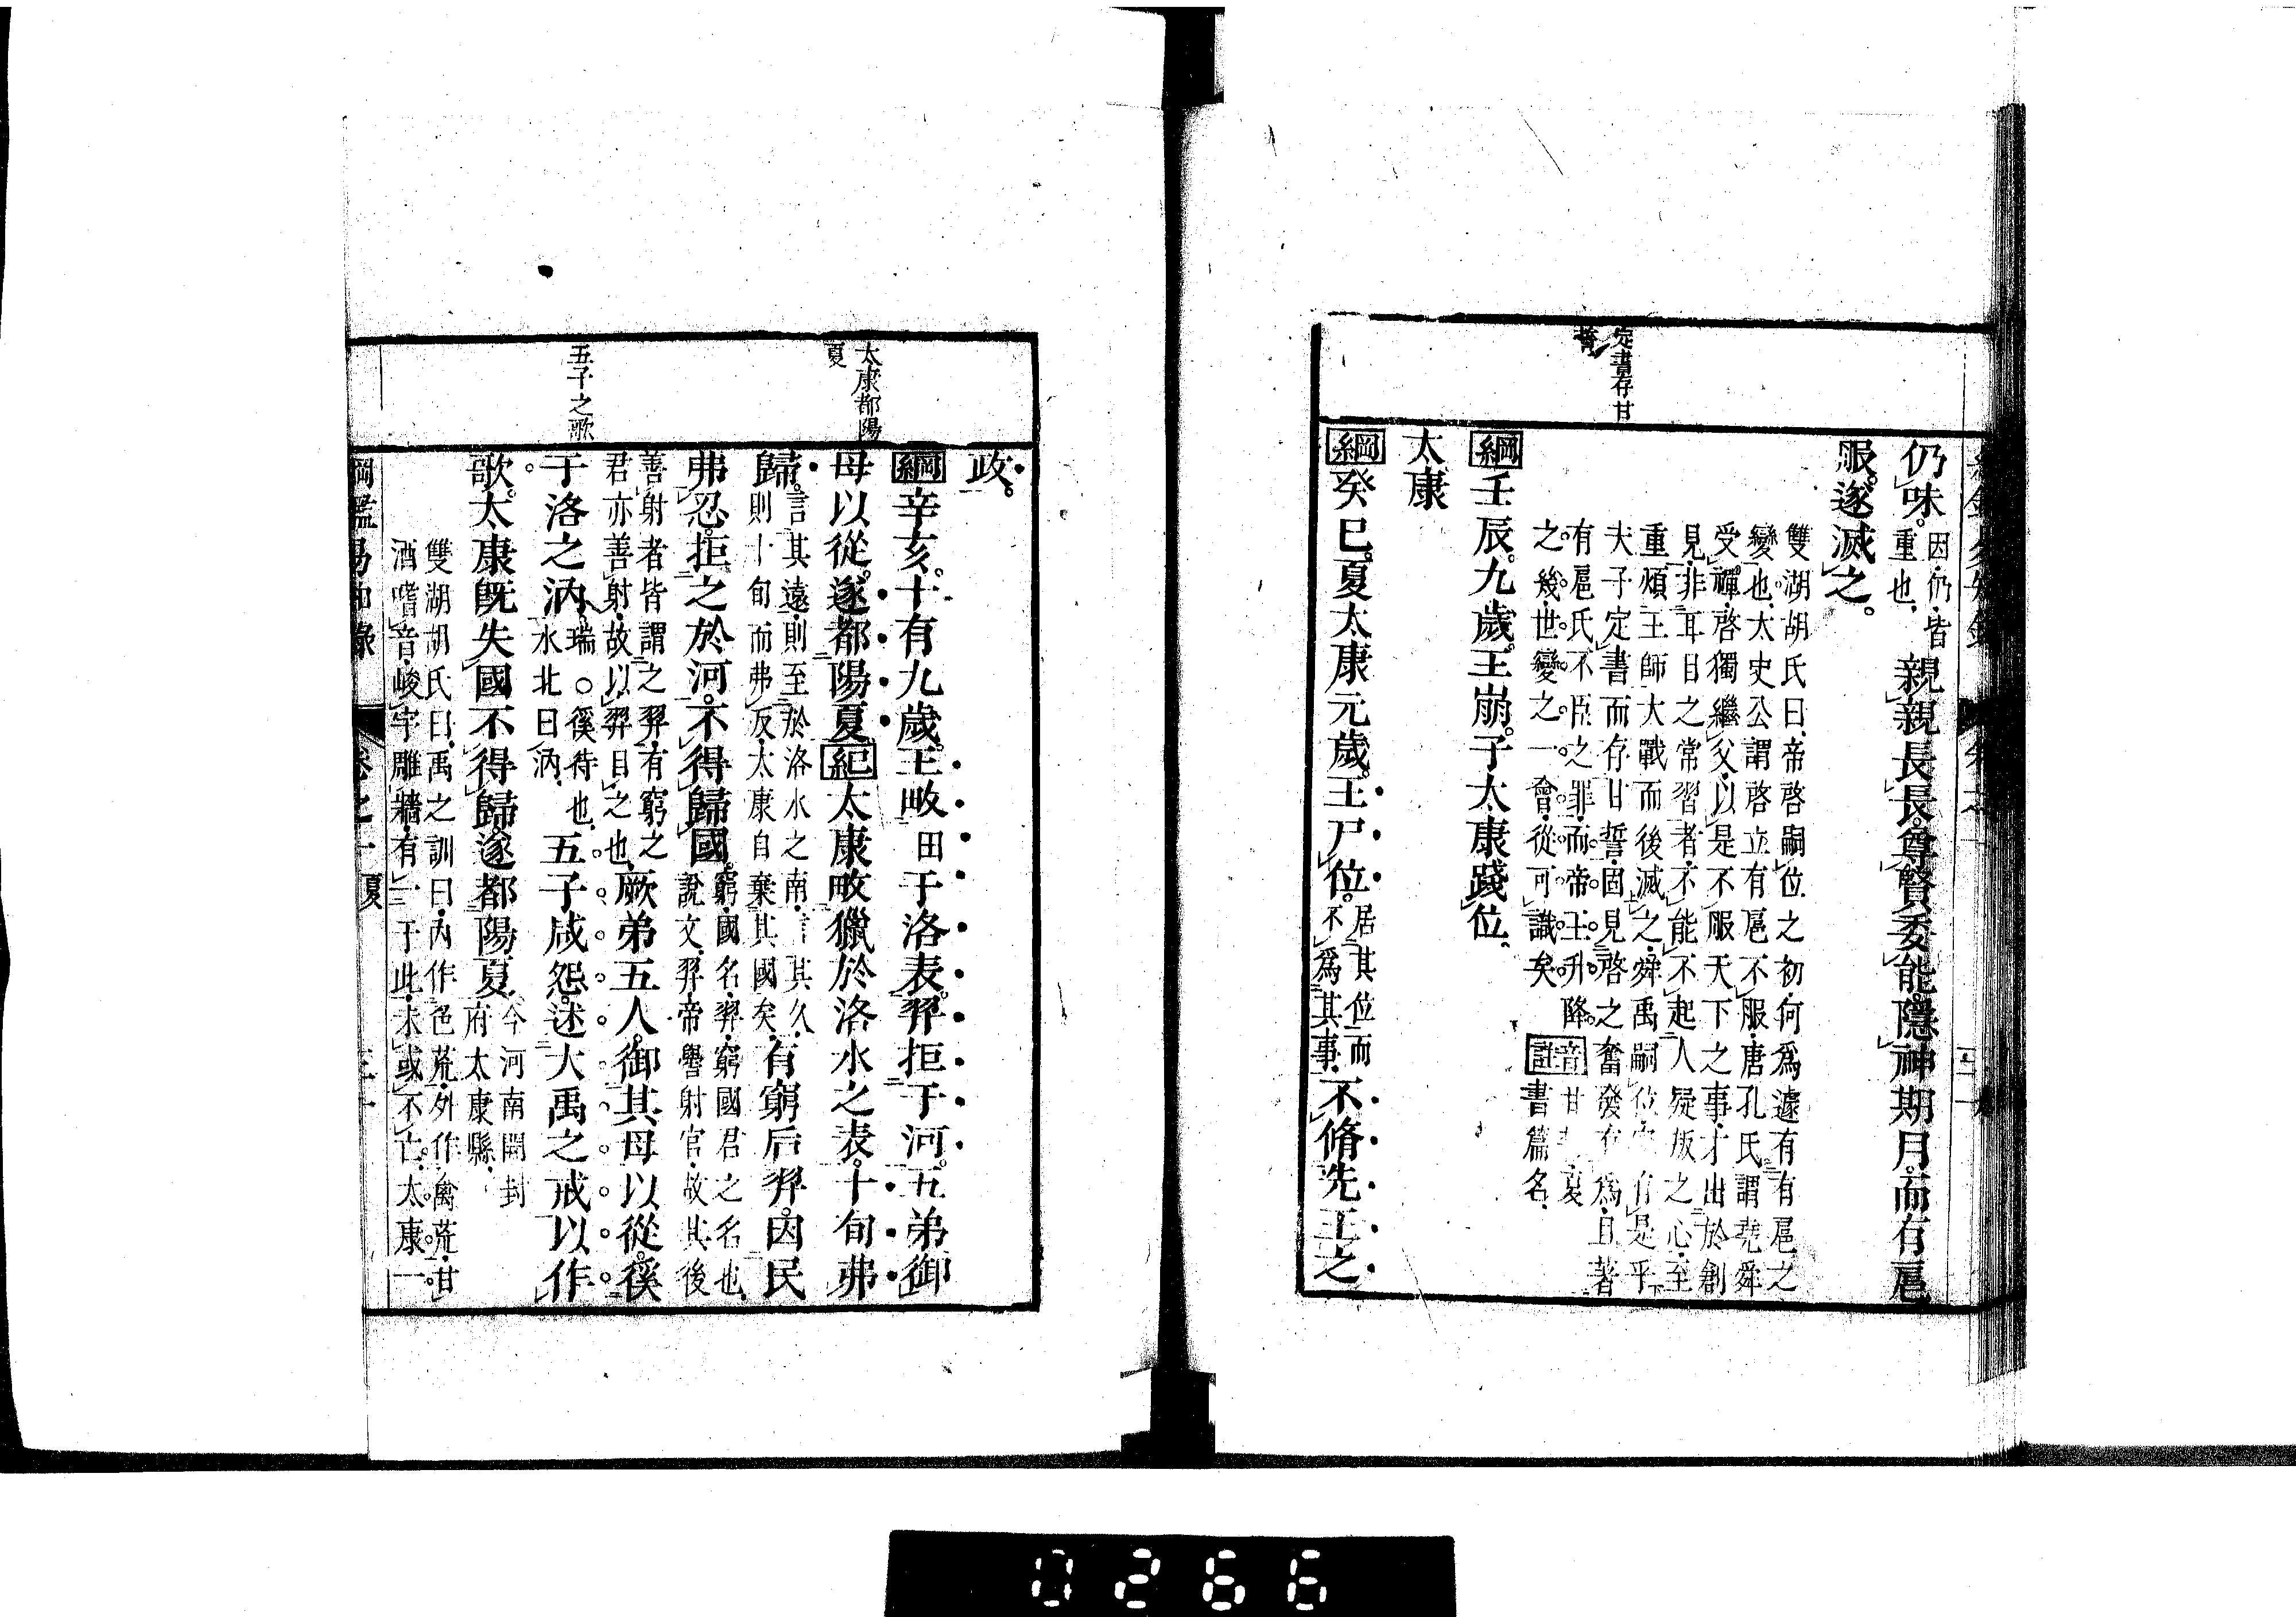 定書存甘
誓
仍味。因仍皆重也親親長長。尊賢委能。隱神期月。而有扈
服。遂滅之。
雙湖胡氏曰、帝啓嗣位之初、何爲遽有有扈之
變也、太史公謂啓立有扈不服、唐孔氏謂堯舜
受禪、啓獨繼父、以是不服、天下之事、才出於創
見、非耳目之常習者、不能不起人疑叛之心、至
重煩王師大戰而後滅之、舜禹嗣位 有是乎
夫子定書而存甘誓、固見啓之奮發有爲、且著
有扈氏不臣之罪、而帝王升降。
之。幾。世。變。之。一。會。從。可。識矣
音甘 夏
註書篇名、
綱壬辰。九歲。王崩。子太康踐位、
太康
綱癸巳。夏太康元歲。王尸位。居其位而不爲其事、不脩先王之
政。
太康都陽
夏
五子之歌
綱辛亥。十有九歲。王畋田于洛表。羿拒于河。五弟御
母以從。遂都陽夏紀太康畋獵於洛水之表。十旬弗
歸。言其遠、則至於洛水之南、言其久、則十旬而弗反、太康自棄其國矣、有窮后羿。因民
弗忍。拒之於河。不得歸國。窮、國名、羿、窮國君之名也、說文、羿、帝嚳射官、故其後
善射者皆謂之羿、有窮之君亦善射、故以羿目之也、厥弟五人。御其母以從。徯
于洛之汭、瑞○徯待也、水北曰汭、五子咸怨。述大禹之戒以作
歌。太康旣失國不得歸。遂都陽夏、今河南開封府太康縣、
雙湖胡氏曰、禹之訓曰、內作色荒、外作禽荒、甘
酒嗜音、峻宇雕牆、有一于此、未或不亡。太康一
卷之一 夏